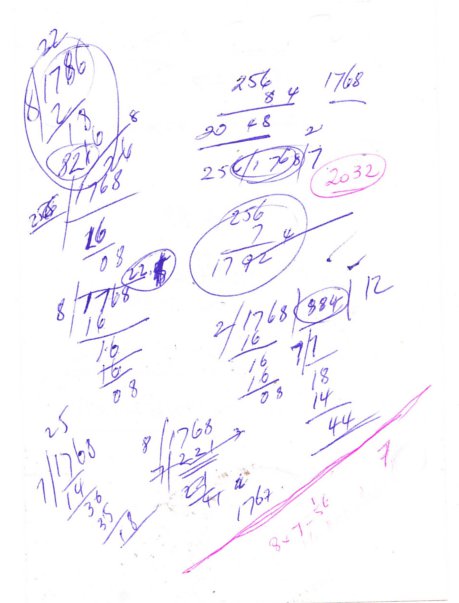 22
8 1786
2
18
82
8
1768
16
08
22
8 1768
16
16
16
08
256
8 4
20 48
1768
2
256 1768 7
2032
256
7 4
1792
2 1768 884 12
16
16
16
08
7
18
14
44
25
7 1768
14
36
35
18
8 1768
7 221
1767
7
8+7-56